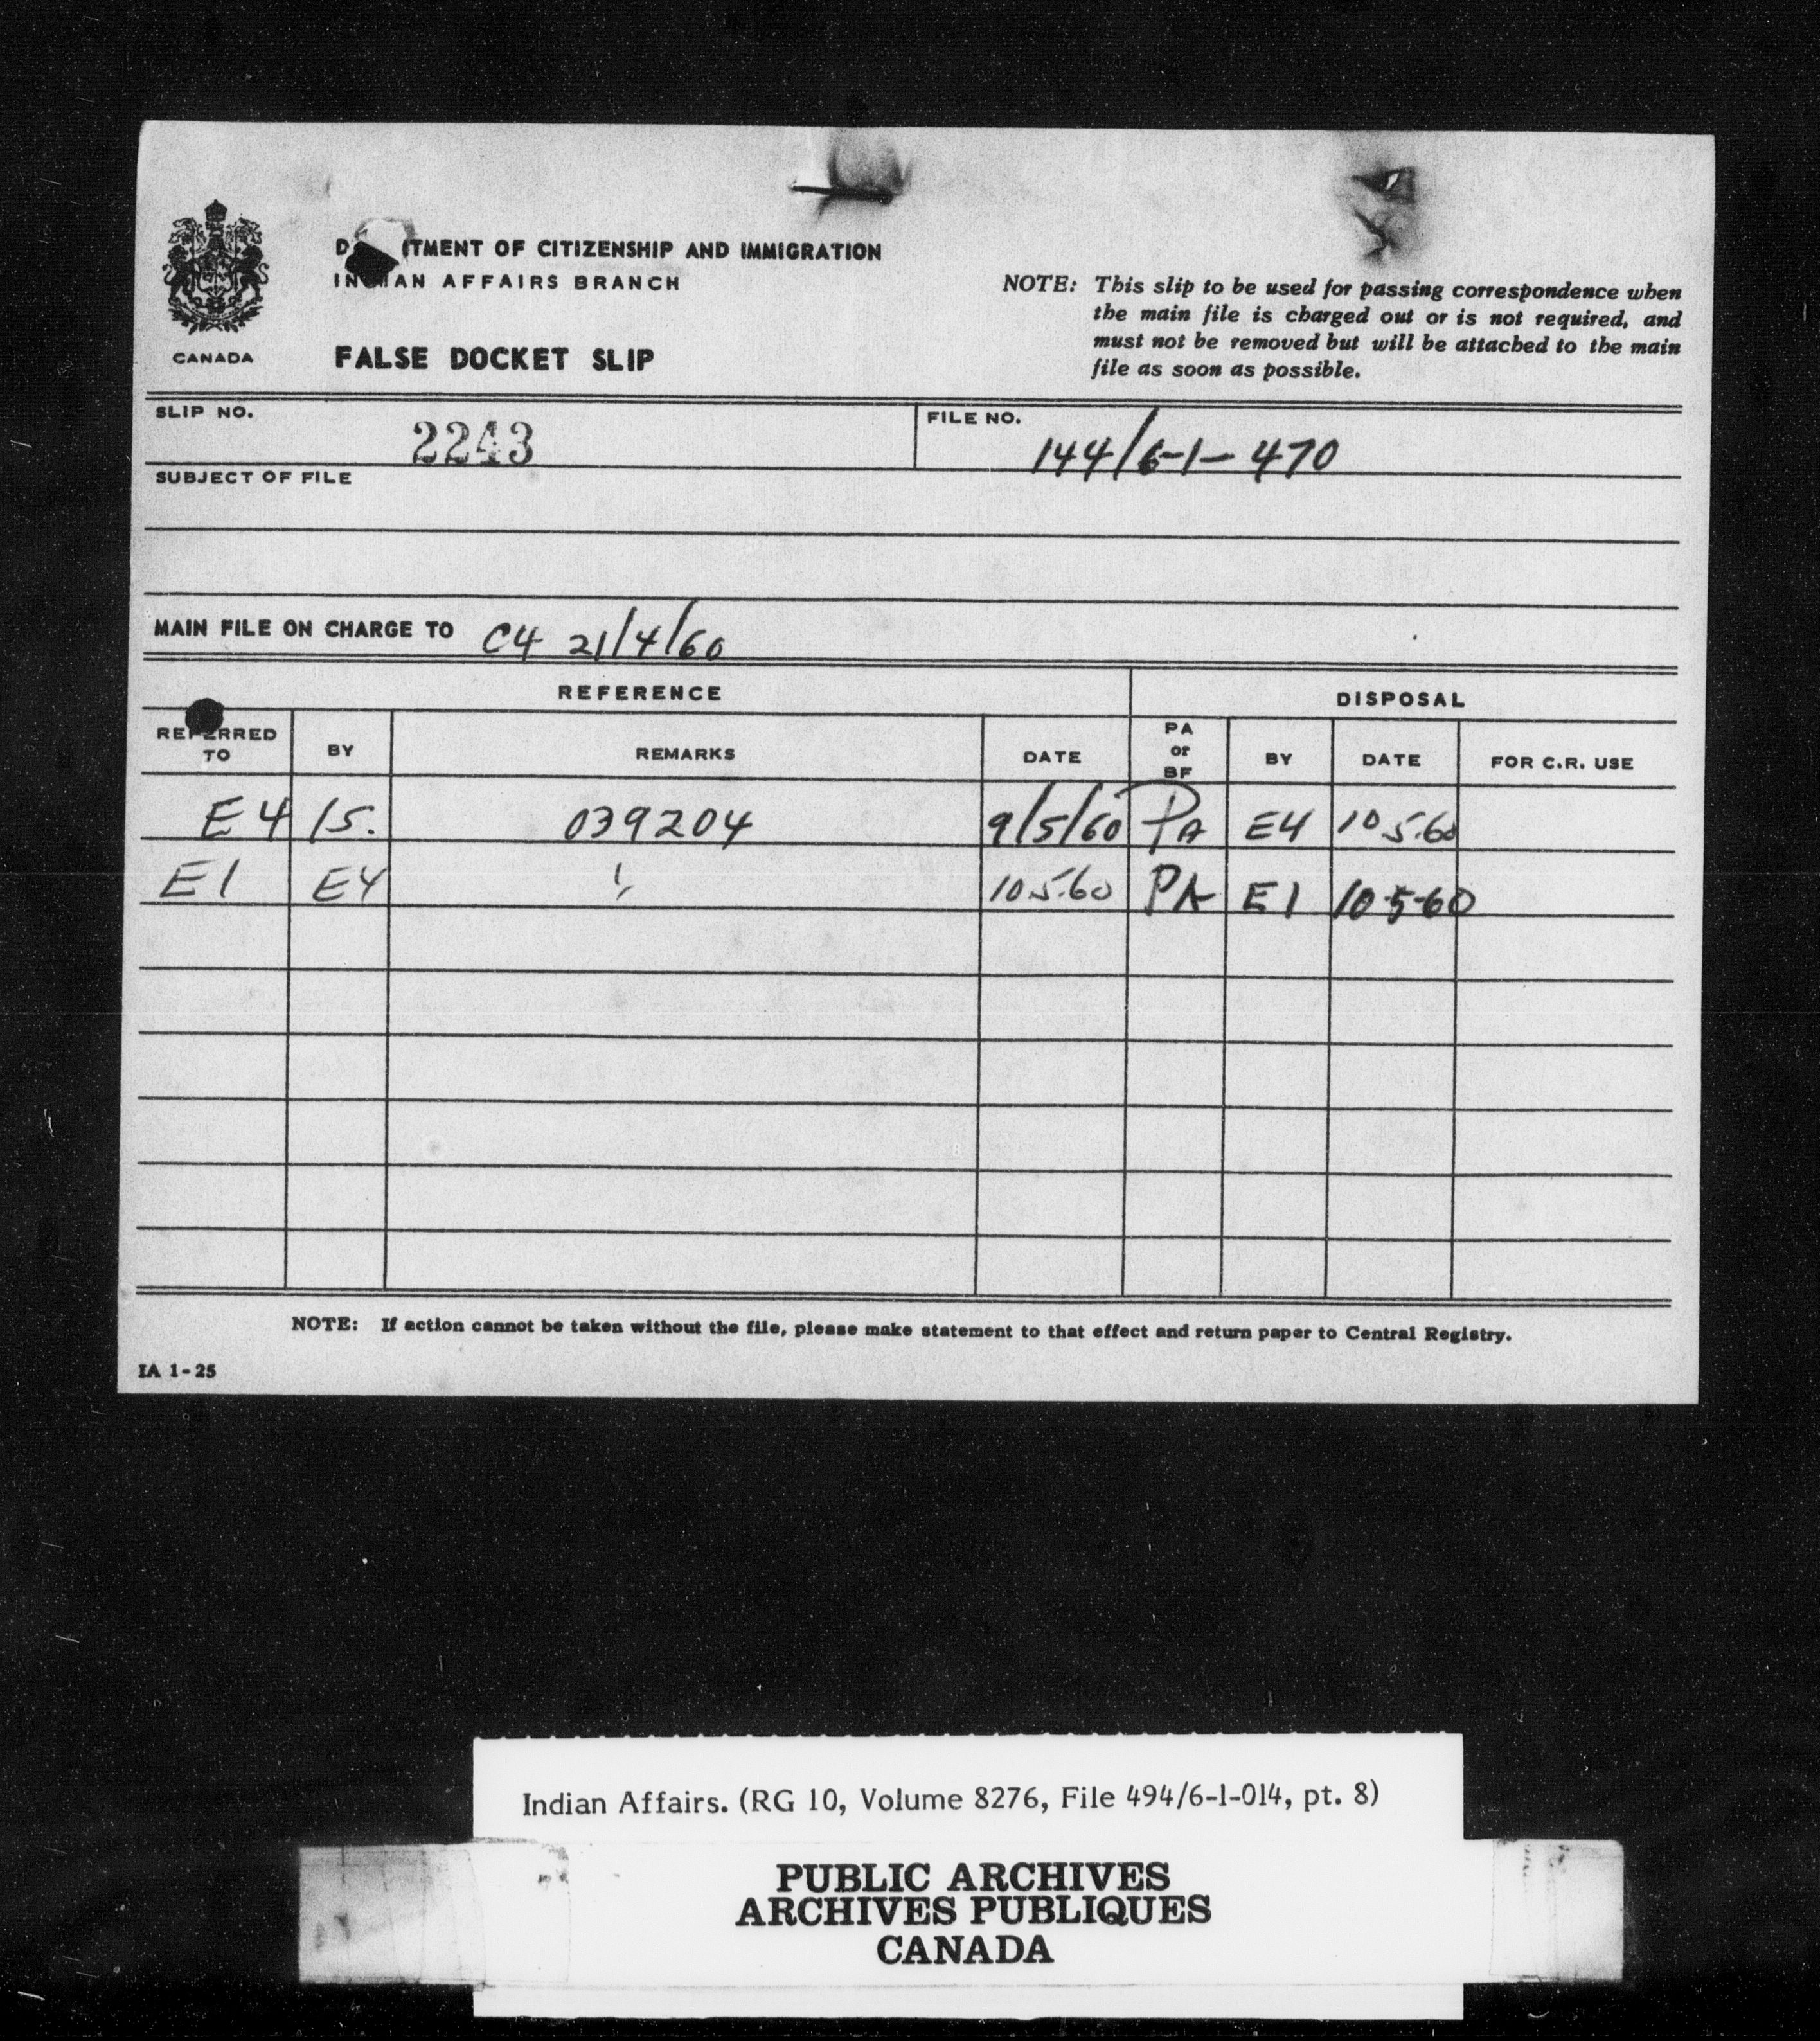 D ITMENT OF CITIZENSHIP AND IMMIGRATION
INDIAN AFFAIRS BRANCH
CANADA
FALSE DOCKET SLIP
NOTE: This slip to be used for passing correspondence when
the main file is charged out or is not required, and
must not be removed but will be attached to the main
file as soon as possible.
SLIP NO. 2243
FILE NO. 144/6-1-470
SUBJECT OF FILE
MAIN FILE ON CHARGE TO C4 21/4/60
REFERENCE DISPOSAL
REFERRED TO BY REMARKS DATE PA or BF BY DATE FOR C.R. USE
E4 15. 039204 9/5/60 PA E4 10 5.60
E1 E4 10 5.60 PA E1 10-5-60
NOTE: If action cannot be taken without the file, please make statement to that effect and return paper to Central Registry.
IA 1-25
Indian Affairs. (RG 10, Volume 8276, File 494/6-1-014, pt. 8)
PUBLIC ARCHIVES
ARCHIVES PUBLIQUES
CANADA